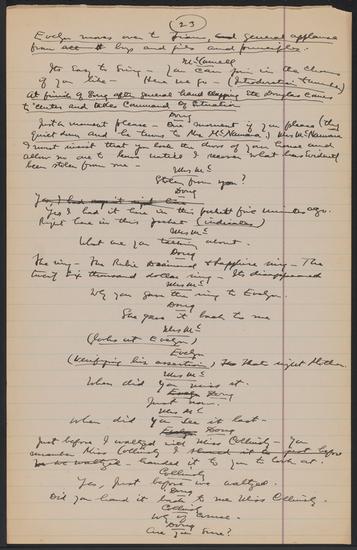 (23)
Evelyn moves over to piano, and general applause
from all
McConnell
Its Easy to Sing - You Can join in the Chorus
if you like - Here we go - (Introduction & number)
At finish of Song after general hand clapping Ste Douglas comes
to center and takes Command of Situation
Doug
Just a moment please - One moment if you please (they
quiet down and he turns to Mr McNamara, & Mrs McNamara
I must insist that you lock the doors of your house and
allow no one to leave until I recover what has evidently
been stolen from me -
Mrs Mc
Stolen from you?
Doug
Yes, I had it here in this pocket five minutes ago.
Right here in this pocket (indicates)
Mrs Mc
What are you talking about.
Doug
The ring - The Diamond & Sapphire ring - The
twenty six thousand dollar ring - Its disappeared
Mrs Mc
Why you gave the ring to Evelyn.
Doug
She gave it back to me
Mrs Mc
(looks at Evelyn)
Evelyn
(Verifying his assertion) That right Mother.
Mrs Mc
When did you miss it.
Evelyn Doug
Just now.
Mrs Mc
When did you see it last -
Evelyn Doug
Just before I waltzed with Miss - You
remember Miss I just before
we waltzed - handed it to you to look at.
Yes, Just before we waltzed.
Doug
Did you hand it back to me Miss
Why of Course.
Doug
Are you Sure?